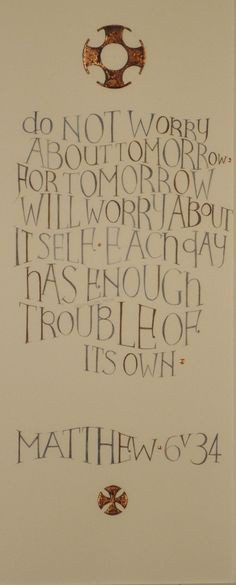 do NOT WORRY
ABOUT TOMORROW·
FOR TOMORROW
WILL WORRY ABOUT
ITSELF· EACH day
hAS ENOUGH
TROUBLE OF
ITS OWN·
MATTHEW·6 v 34